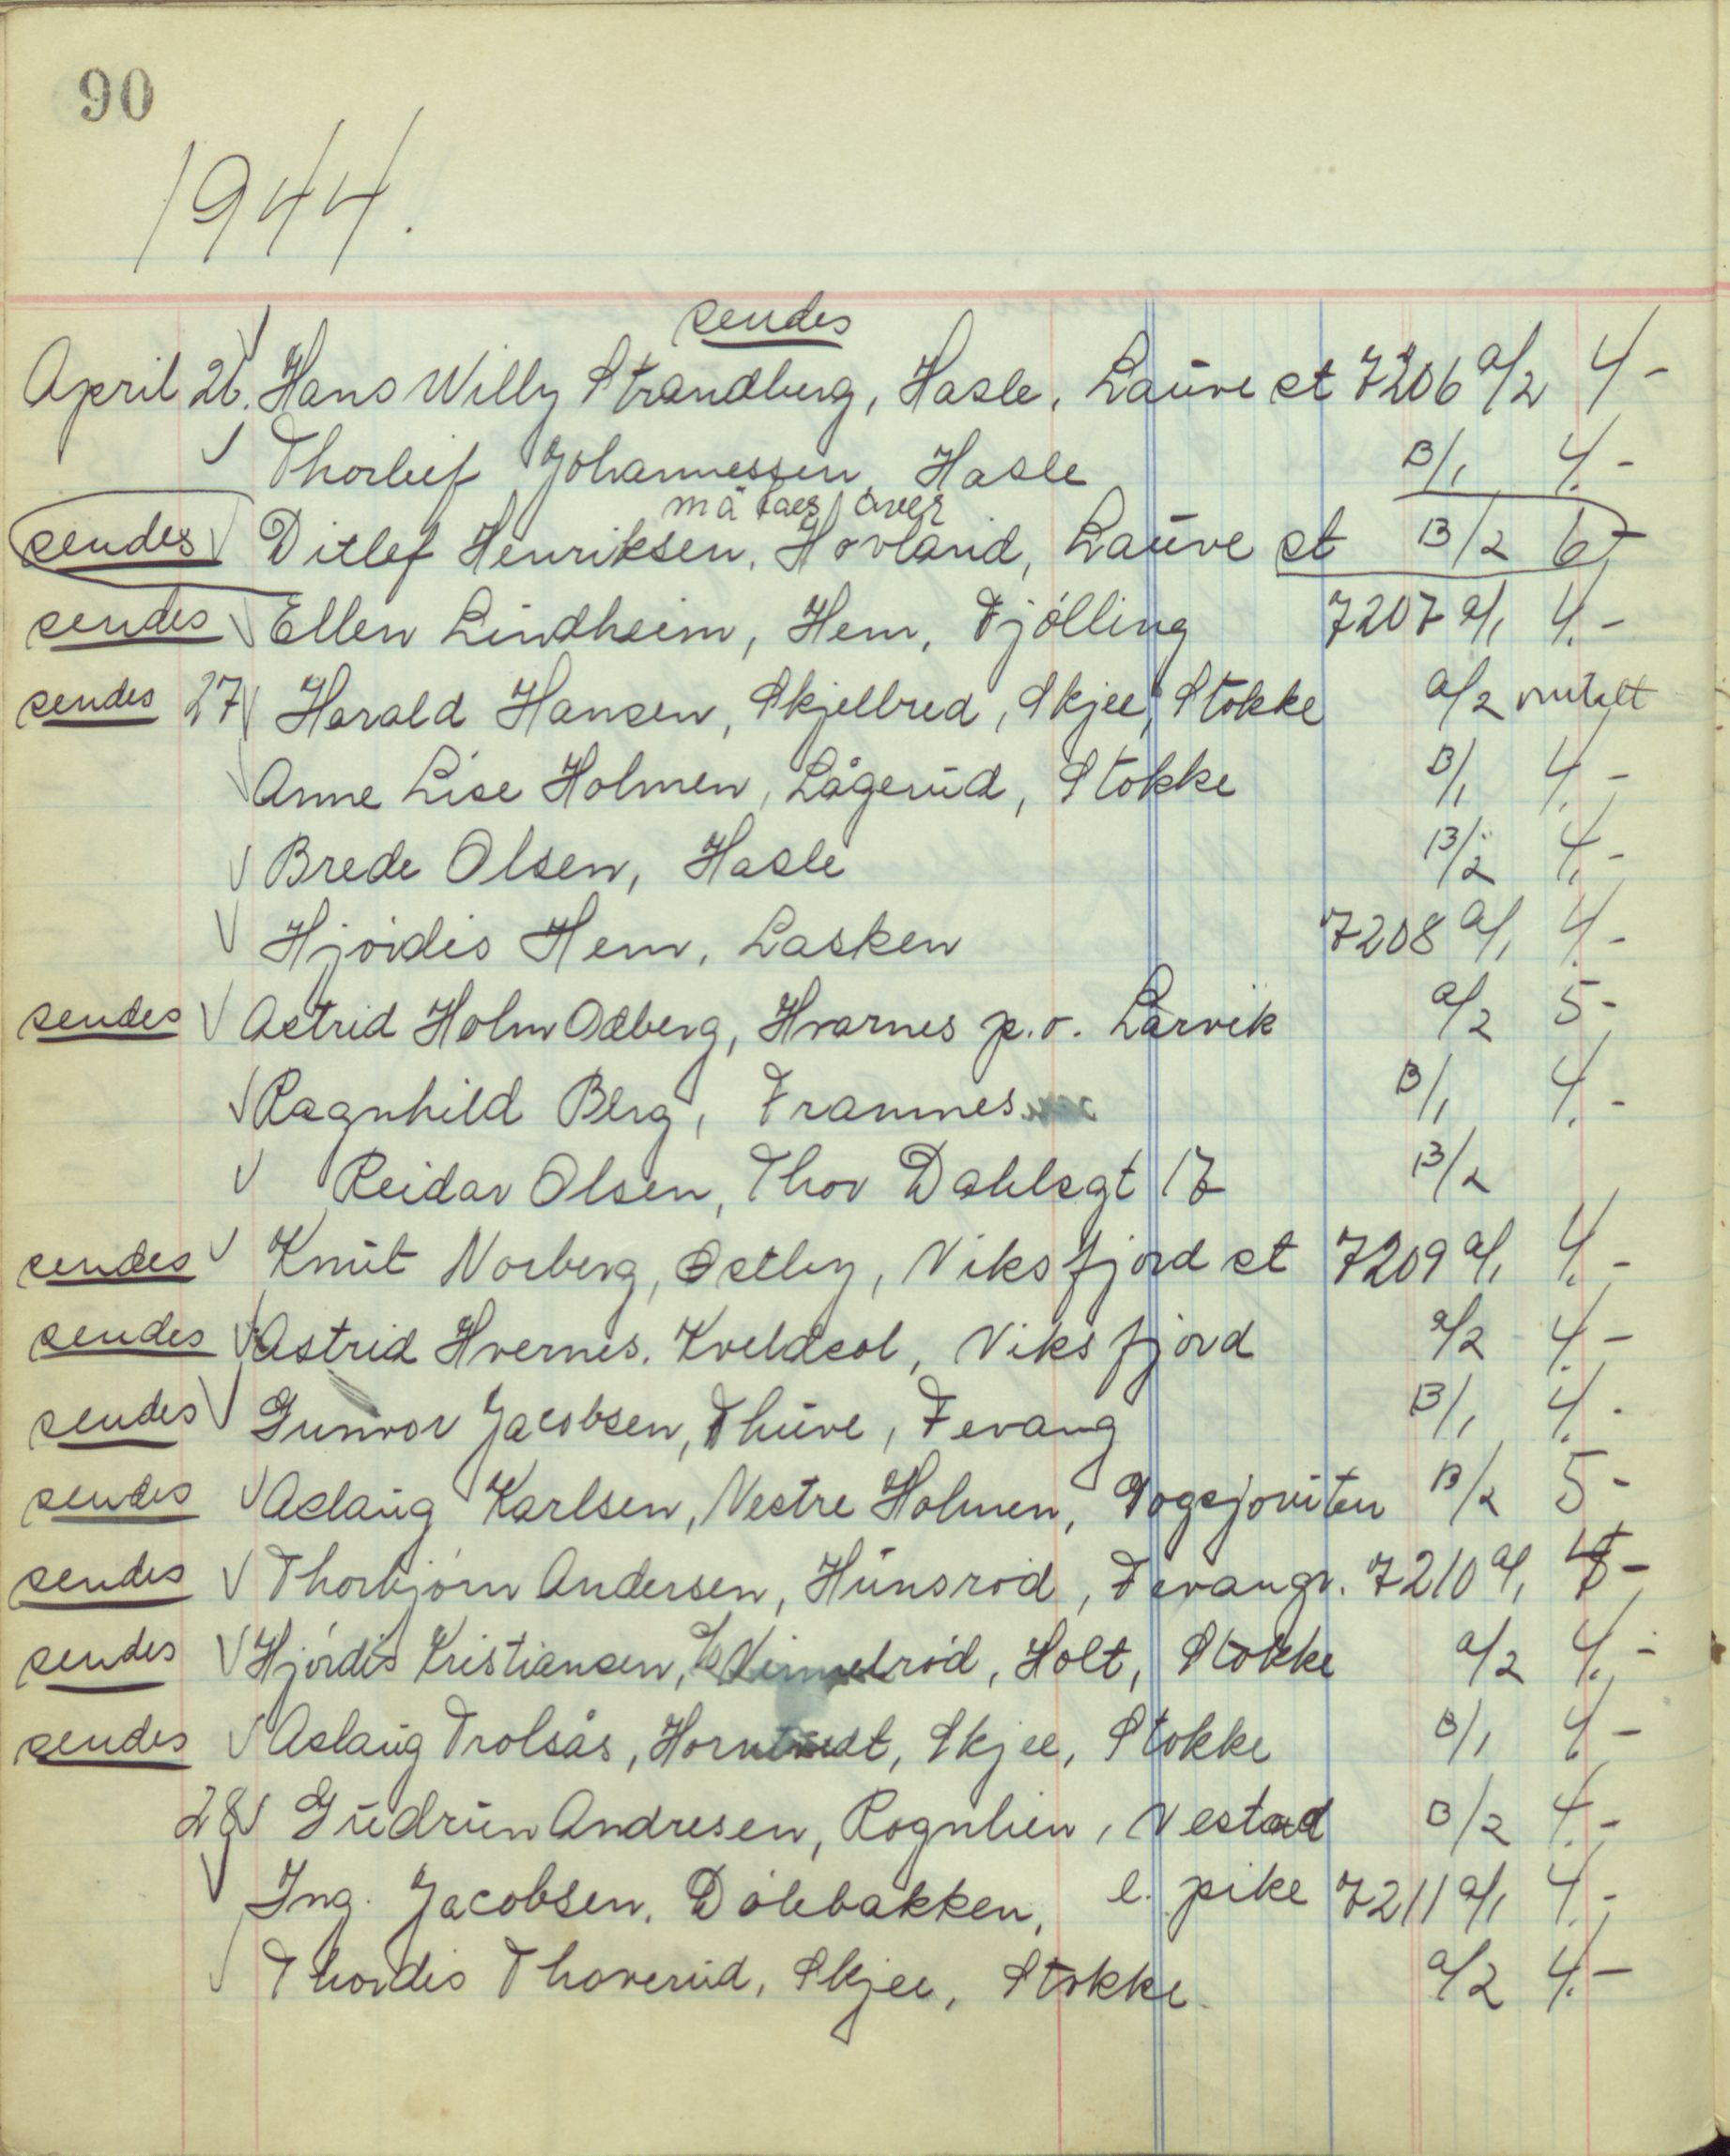 90
1944.
sendes
April 26. Hans Willy Strandberg, Hasle, Lauve st 7206 a/2 4-
Thorleif Johannessen, Hasle B/1 4.-
må taes over
sendes Ditlef Henriksen, Hovland, Lauve st B/2 6-
sendes Ellen Lindheim, Hem, Tjølling 7207 a/1 4.-
sendes 27 Harald Hansen, Skjelbred, Skjee, Stokke a/2
Anne Lise Holmen, Lågerud, Stokke B/1 4.-
Brede Olsen, Hasle B/2 4.-
Hjørdis Hem, Lasken 7208 a/1 4.-
sendes Astrid Holm Odberg, Hvarnes p.o. Larvik a/2 5-
Ragnhild Berg, Framnes B/1 4.-
Reidar Olsen, Thor Dahlsgt 17 B/2
sendes Knut Norberg, Østby, Viksfjord st 7209 a/1 4.-
sendes Astrid Hvernes. Kveldsol, Viksfjord a/2 4.-
sendes Gunvor Jacobsen, Thuve, Fevang B/1 4.-
sendes Aslaug Karlsen, Vestre Holmen, B/2 5-
sendes Thorbjørn Andersen, Hunsrød, Fevang. 7210 a/1
sendes Hjørdis Kristiansen, Holt, Stokke a/2 4.-
sendes Aslaug Trolsås, Skjee, Stokke B/1 4-
28 Gudrun Andresen, Rognlien, Vestad B/2 4.-
Ing. Jacobsen, Dølebakken, l. pike 7211 a/1 4.-
Thordis Thoverud, Skjee, Stokke a/2 4.-